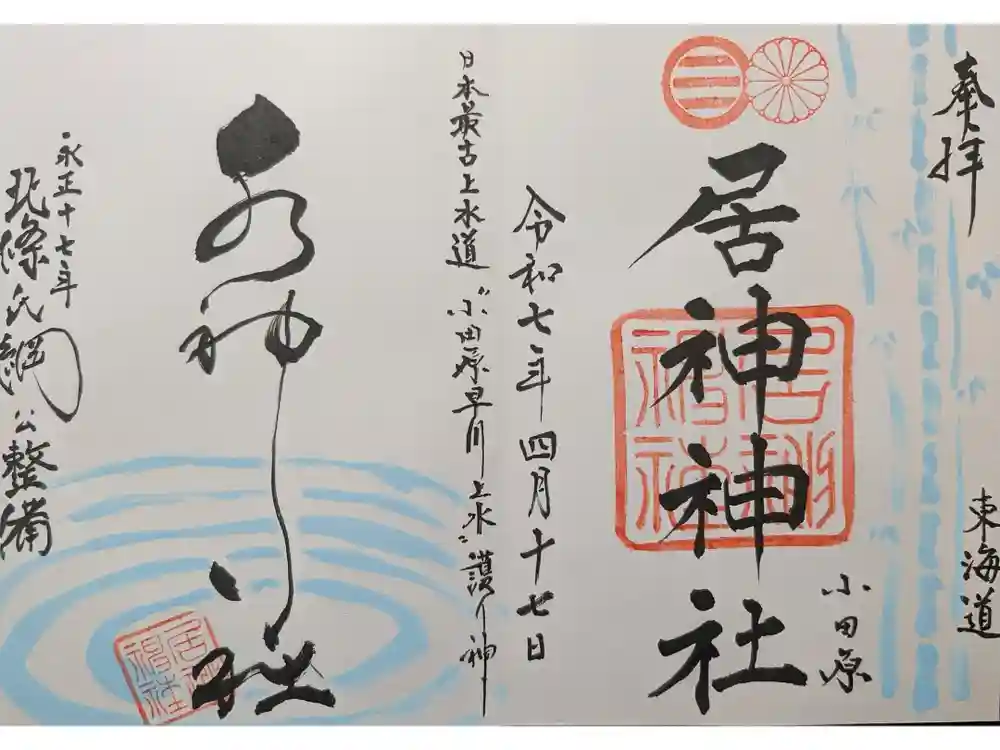 奉拝
東海道
小田原
居神神社
令和七年四月十七日
日本最古上水道〝小田原早川上水〟護り神
水神社
永正十七年
北條氏綱公整備
居神神社